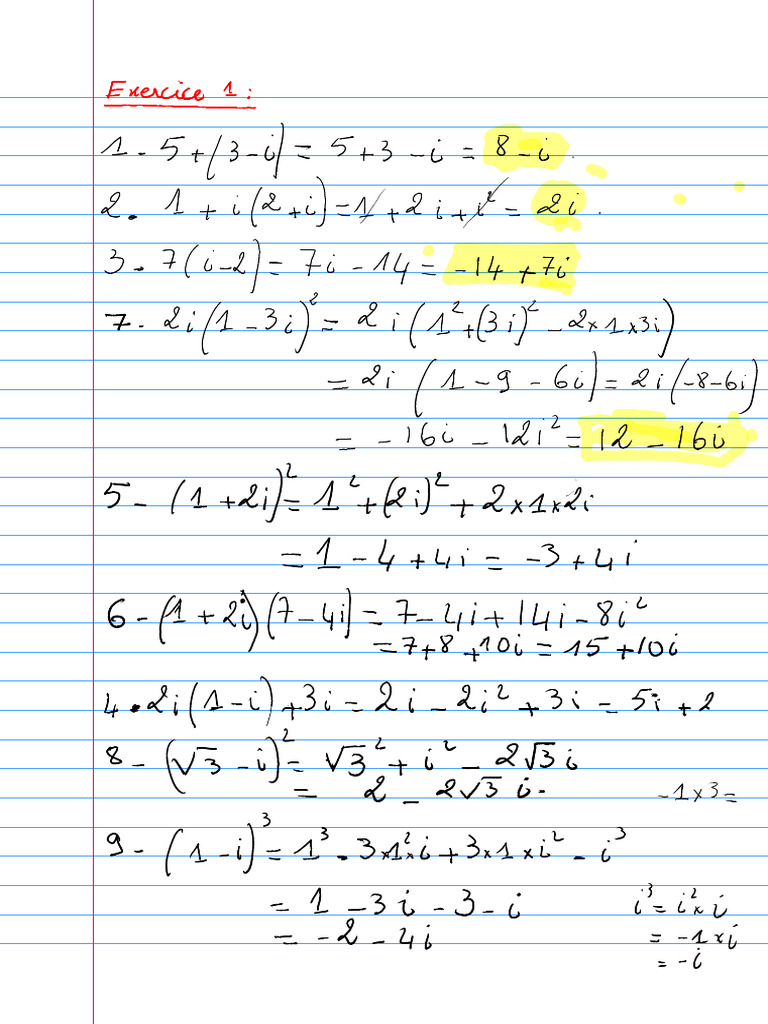 Exercice 1:
1 - 5+(3-i) = 5+3-i = 8-i.
2. 1+i(2+i) = 1+2i+i² = 2i.
3 - 7(i-2) = 7i-14 = -14+7i
7 - 2i(1-3i)² = 2i(1²+(3i)²-2×1×3i)
= 2i(1-9-6i) = 2i(-8-6i)
= -16i-12i² = 12-16i
5 - (1+2i)² = 1²+(2i)²+2×1×2i
= 1-4+4i = -3+4i
6 - (1+2i)(7-4i) = 7-4i+14i-8i²
= 7+8+10i = 15+10i
4. 2i(1-i)+3i = 2i-2i²+3i = 5i+2
8 - (√3-i)² = √3²+i²-2√3i
= 2-2√3 i.
-1×3=
9 - (1-i)³ = 1³-3×1²×i+3×1×i²-i³
= 1-3i-3-i
i³ = i²×i
= -2-4i
= -1×i
= -i